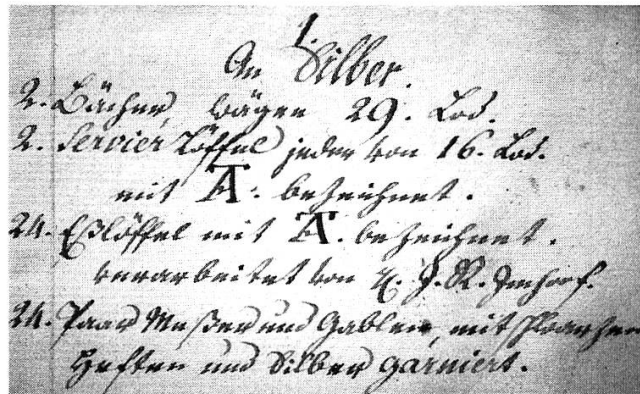 1.
An Silber.
2. Bächer, wägen 29. Lod.
2. Servier Löffel jeder von 16. Lod.
mit A. bezeichnet.
24. Eßlöffel mit A. bezeichnet.
verarbeitet von J. R. Imhoof.
24. Paar Meßer und Gablen, mit
Heften und Silber garniert.